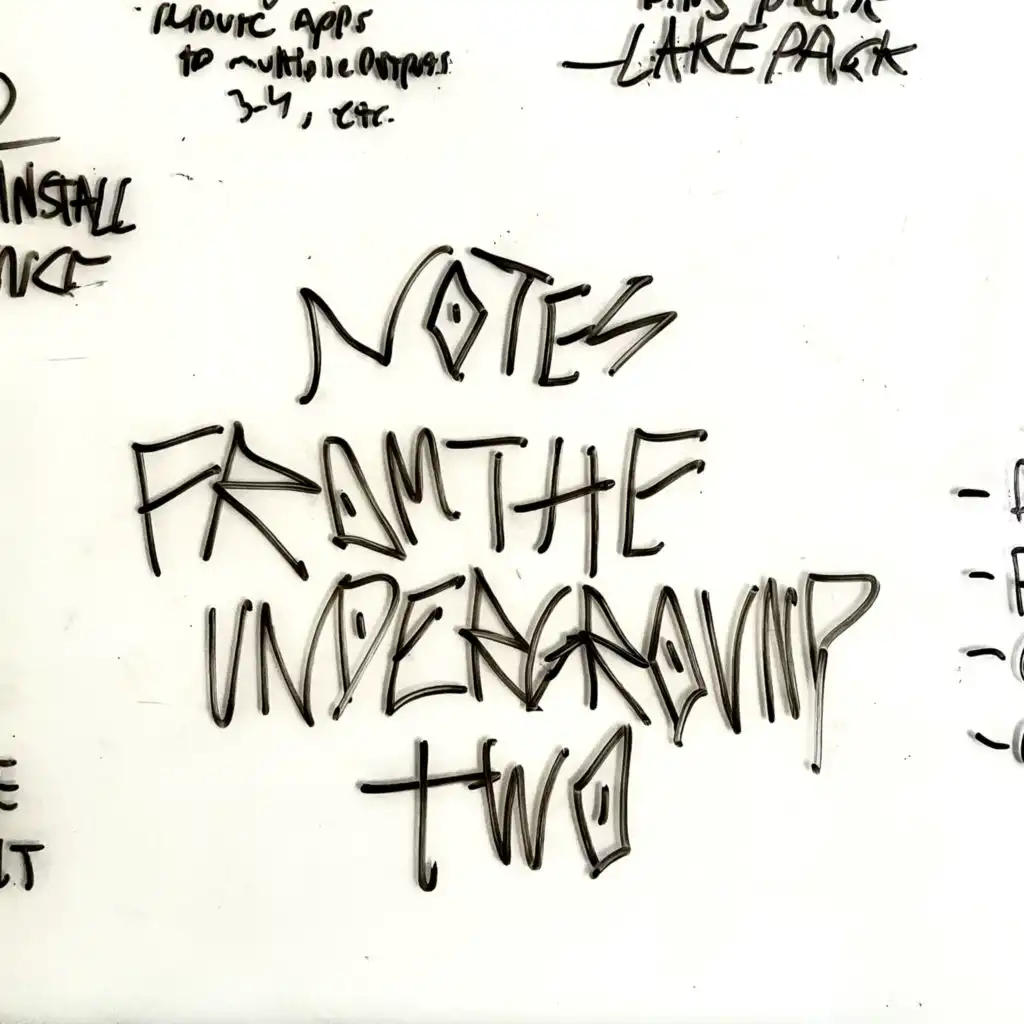 Apps
to multiple
3-4, etc.
LAKE PACK
INSTALL
NOTES
FROM THE
UNDERGROUND
TWO